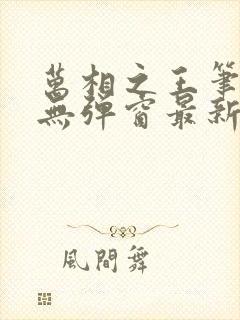 萬相之王筆
無彈窗最新
風間舞